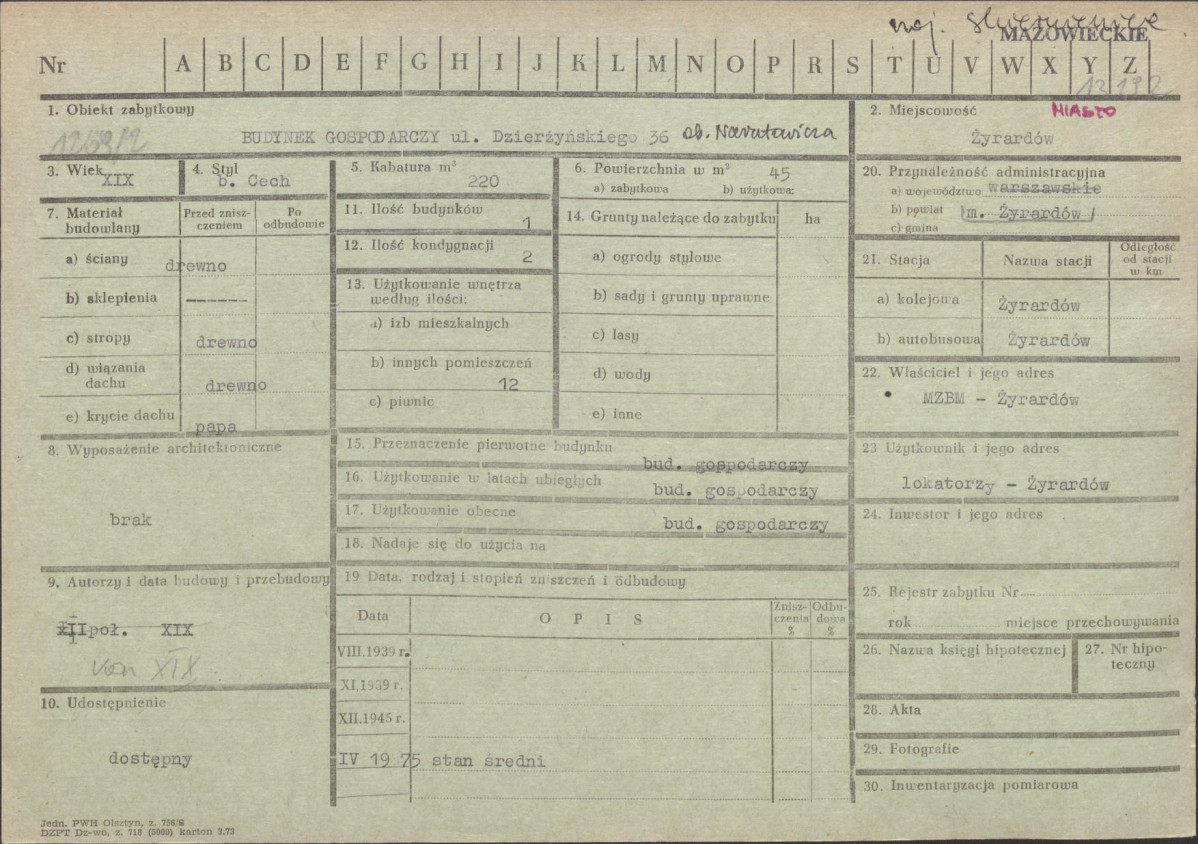 woj. skierniewice
MAZOWIECKIE
Nr A B C D E F G H I J K L M N O P R S T U V W X Y Z
1. Obiekt zabytkowy
BUDYNEK GOSPODARCZY ul. Dzierżyńskiego 36 ob. Narutowicza
2. Miejscowość MIASTO
Żyrardów
3. Wiek XIX
4. Styl
b. Cech
5. Kabatura m³
220
6. Powierzchnia w m² 45
a) zabytkowa b) użytkowa:
20. Przynależność administracyjna
a) województwo warszawskie
b) powiat m. Żyrardów
c) gmina
7. Materiał budowlany
Przed zniszczeniem
Po odbudowie
a) ściany drewno
b) sklepienia -------
c) stropy drewno
d) wiązania dachu drewno
e) krycie dachu papa
11. Ilość budynków 1
12. Ilość kondygnacji 2
13. Użytkowanie wnętrza
według ilości:
a) izb mieszkalnych
b) innych pomieszczeń
12
c) piwnic
14. Grunty należące do zabytku ha
a) ogrody stylowe
b) sady i grunty uprawne
c) lasy
d) wody
e) inne
21. Stacja Nazwa stacji Odległość od stacji w km
a) kolejowa Żyrardów
b) autobusowa Żyrardów
22. Właściciel i jego adres
MZBM - Żyrardów
8. Wyposażenie architektoniczne
brak
15. Przeznaczenie pierwotne budynku
bud. gospodarczy
16. Użytkowanie w latach ubiegłych
bud. gospodarczy
17. Użytkowanie obecne
bud. gospodarczy
18. Nadaje się do użycia na
23 Użytkownik i jego adres
lokatorzy - Żyrardów
24. Inwestor i jego adres
9. Autorzy i data budowy i przebudowy
II poł. XIX
kon XIX
19 Data, rodzaj i stopień zniszczeń i odbudowy
Data OPIS Zniszczenia % Odbudowa %
VIII.1939 r.
XI.1939 r.
XII.1945 r.
IV 1975 stan średni
25. Rejestr zabytku Nr
rok miejsce przechowywania
26. Nazwa księgi hipotecznej
27. Nr hipoteczny
28. Akta
29. Fotografie
30. Inwentaryzacja pomiarowa
10. Udostępnienie
dostępny
Jedn. PWH Olsztyn, z. 756/S
DZPT Dz-wo, z. 710 (5000) karton 3.73